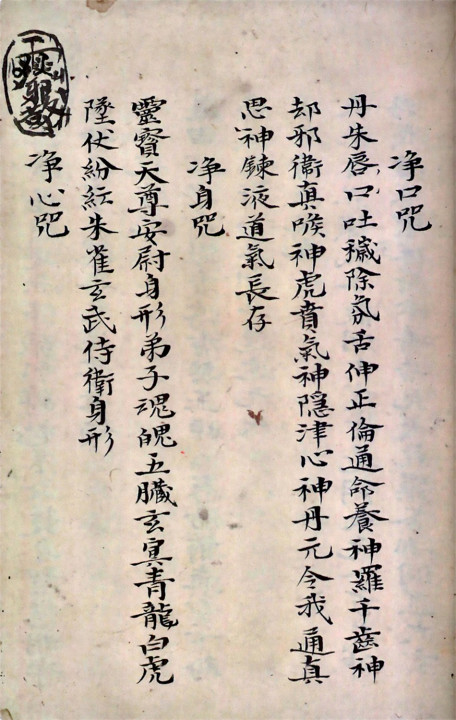 净口咒
丹朱唇口吐穢除氛舌伸正倫通命養神羅千齒神
却邪衛真喉神虎賁氣神隱津心神丹元令我通真
思神鍊液道氣長存
净身咒
靈寶天尊安尉身形弟子魂魄五臟玄冥青龍白虎
墜伏紛紜朱雀玄武侍衛身形
净心咒